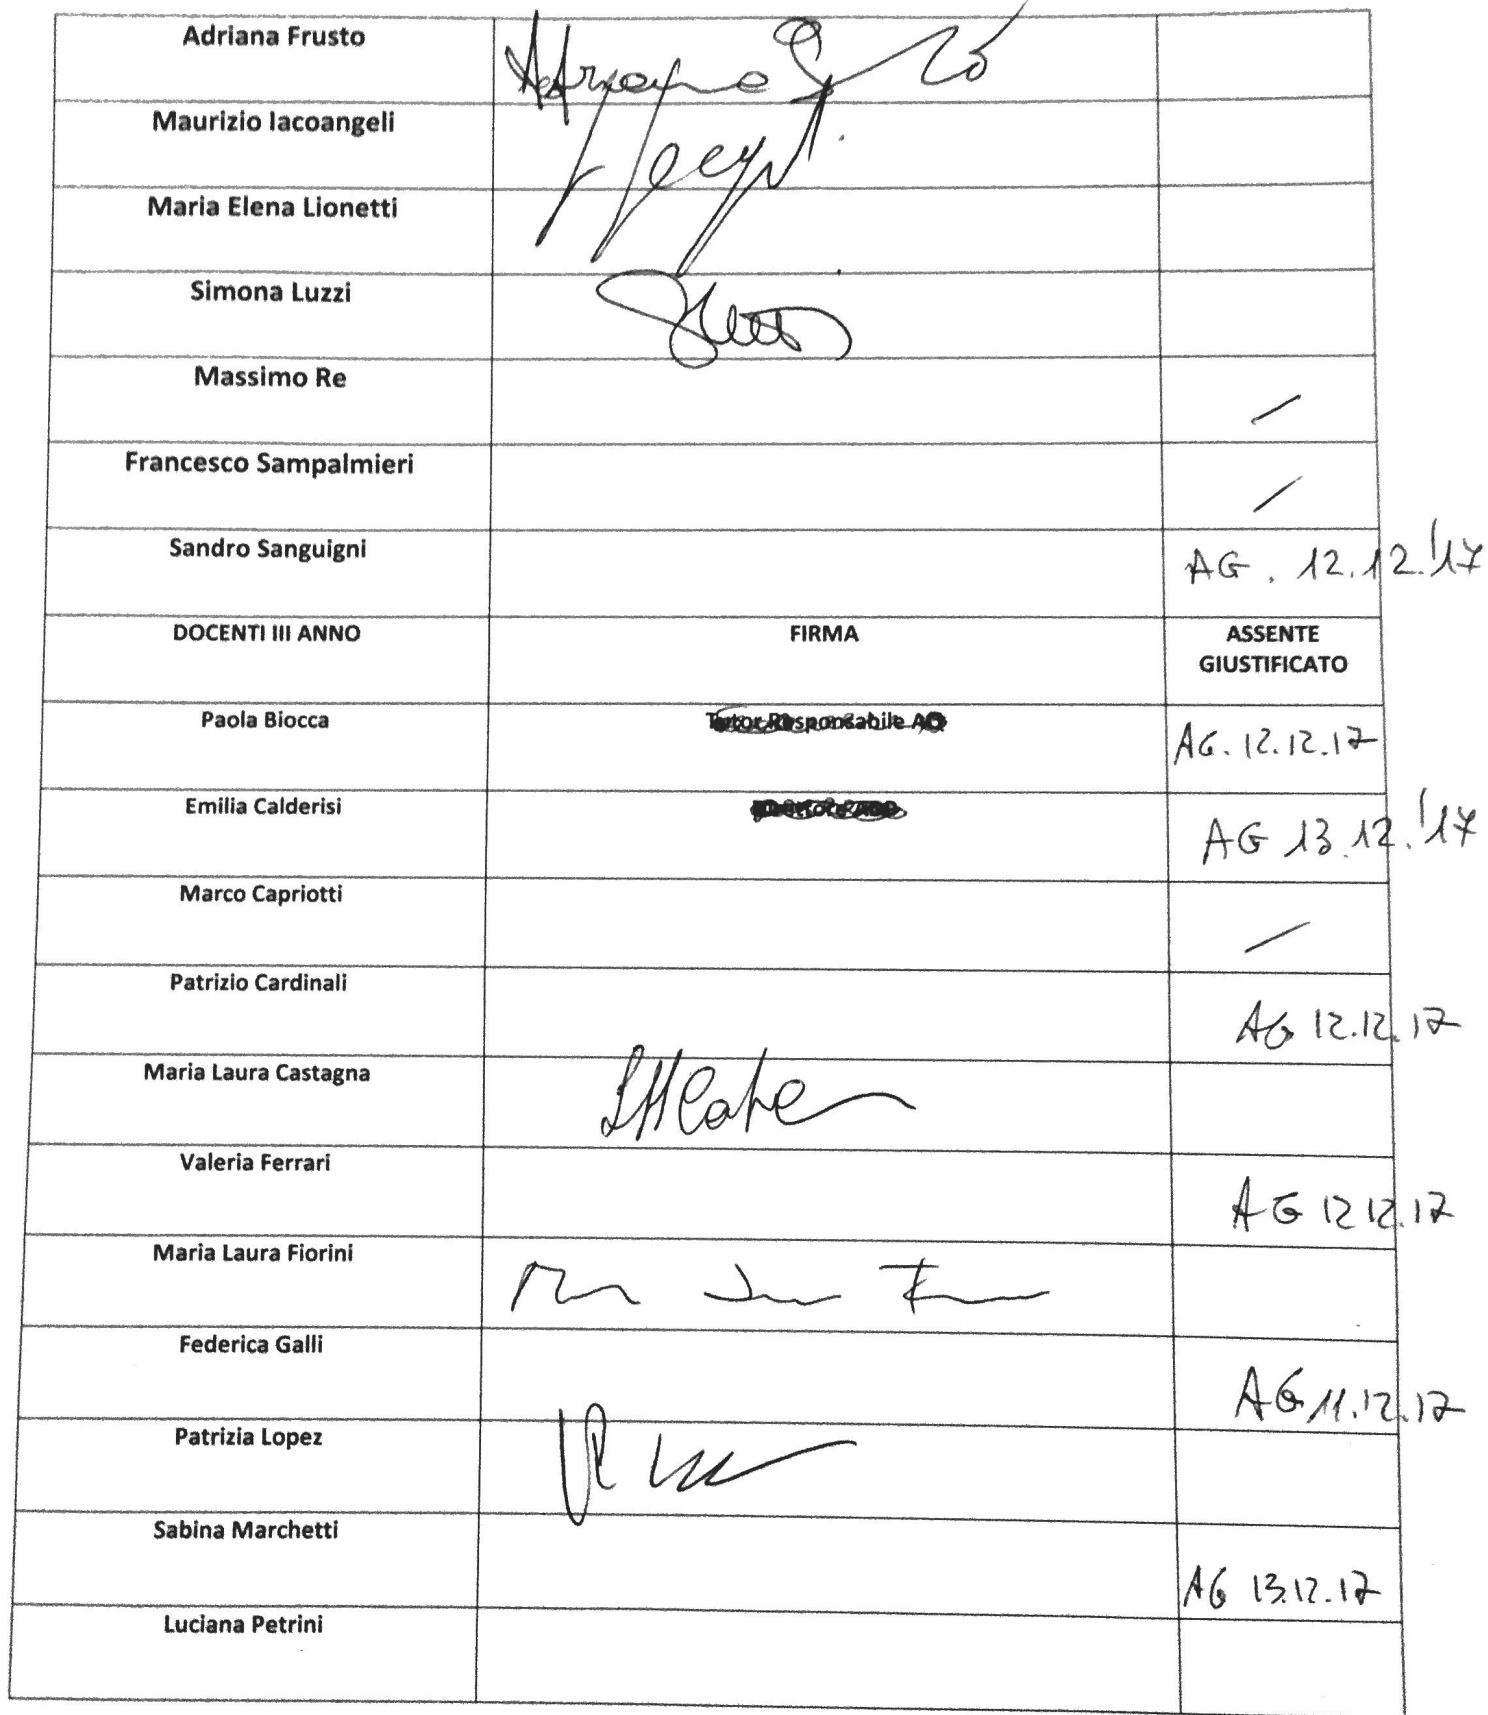 Adriana Frusto
Maurizio Iacoangeli
Maria Elena Lionetti
Simona Luzzi
Massimo Re
Francesco Sampalmieri
Sandro Sanguigni AG. 12.12.'17
DOCENTI III ANNO FIRMA ASSENTE
GIUSTIFICATO
Paola Biocca Tutor Responsabile
AG. 12.12.17
Emilia Calderisi
AG 13.12.'17
Marco Capriotti
Patrizio Cardinali
AG 12.12.17
Maria Laura Castagna
Valeria Ferrari
AG 12 12.17
Maria Laura Fiorini
Federica Galli
AG 11.12.17
Patrizia Lopez
Sabina Marchetti
AG 13.12.17
Luciana Petrini